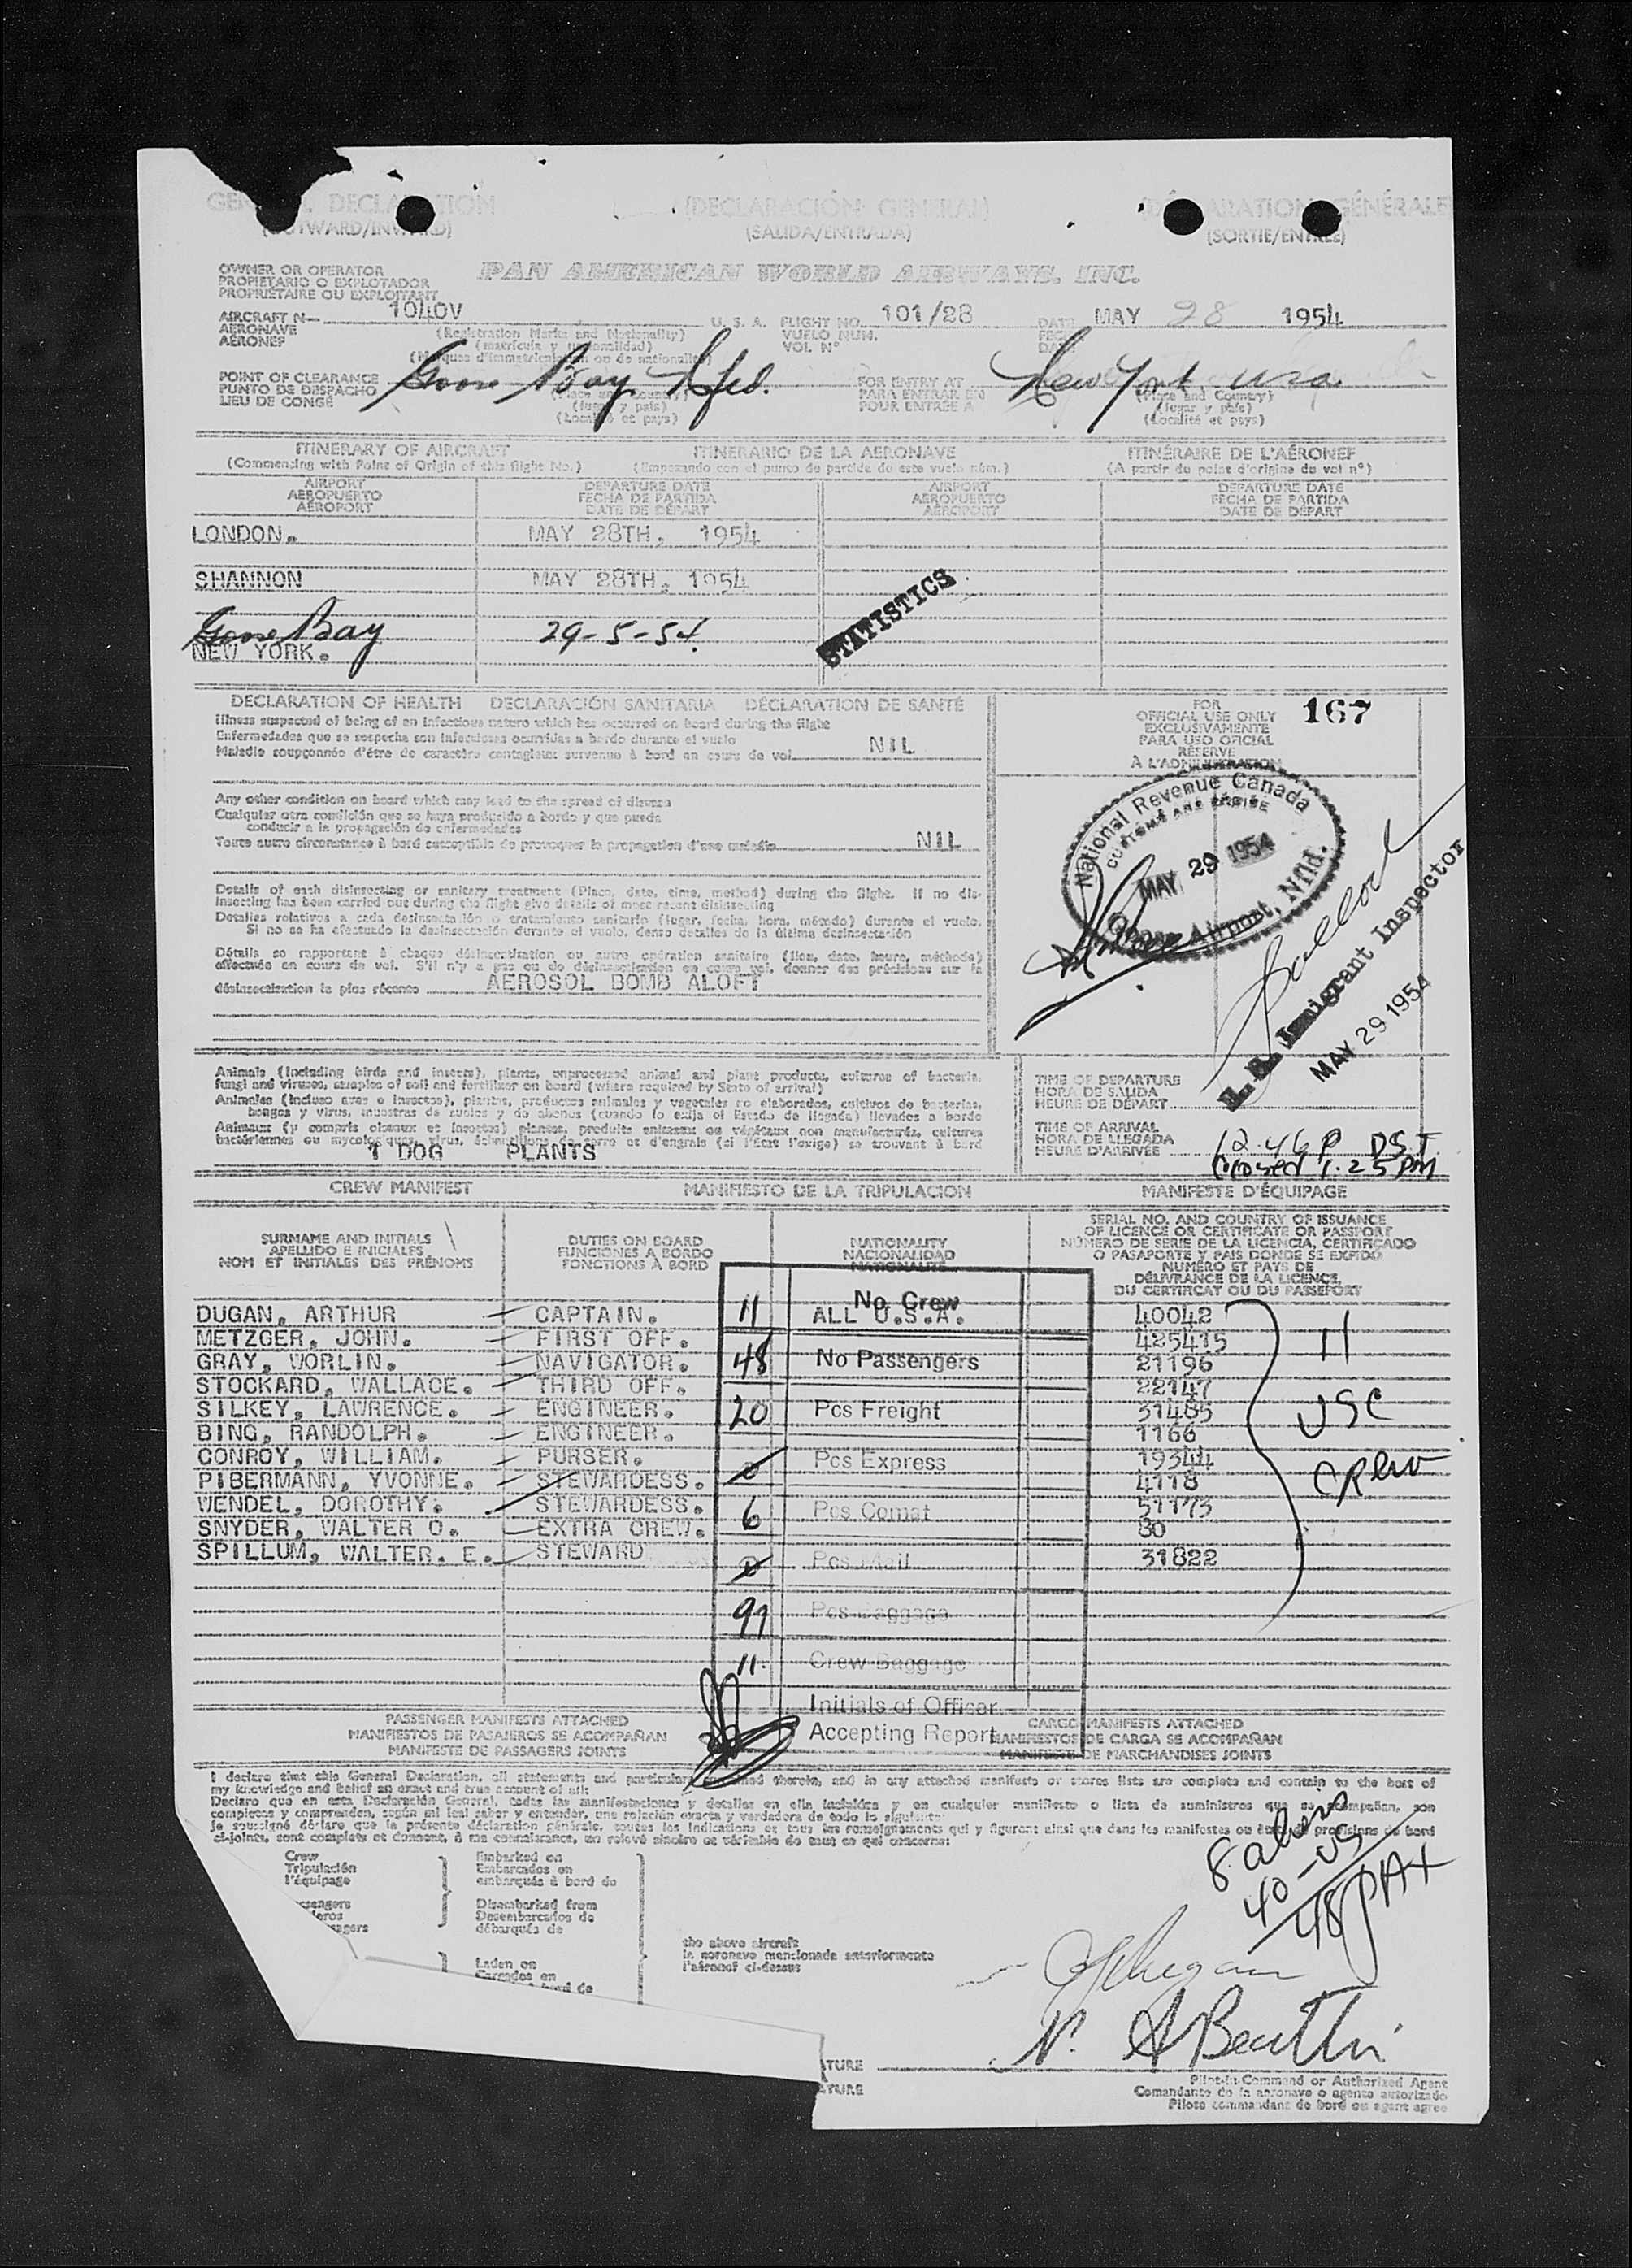 GENERAL DECLARATION (DECLARACIÓN GENERAL) DÉCLARATION GÉNÉRALE
(OUTWARD/INWARD) (SALIDA/ENTRADA) (SORTIE/ENTRÉE)
OWNER OR OPERATOR
PROPIETARIO O EXPLOTADOR
PROPRIÉTAIRE OU EXPLOITANT
PAN AMERICAN WORLD AIRWAYS, INC.
AIRCRAFT N— 1040V U. S. A. FLIGHT NO. 101/28 DATE MAY 28 1954
AERONAVE (Registration Marks and Nationality) VUELO NUM.
AÉRONEF (matrícula y nacionalidad) VOL N°
(Marques d'immatriculation ou de nationalité)
POINT OF CLEARANCE Goose Bay Nfld. FOR ENTRY AT New York, USA
PUNTO DE DESPACHO (Place and Country) PARA ENTRAR EN (Place and Country)
LIEU DE CONGÉ (lugar y país) POUR ENTRÉE A (lugar y país)
(Localité et pays) (Localité et pays)
ITINERARY OF AIRCRAFT ITINERARIO DE LA AERONAVE ITINÉRAIRE DE L'AÉRONEF
(Commencing with Point of Origin of this flight No.) (Empezando con el punto de partida de este vuelo núm.) (A partir du point d'origine du vol n°)
AIRPORT DEPARTURE DATE AIRPORT DEPARTURE DATE
AEROPUERTO FECHA DE PARTIDA AEROPUERTO FECHA DE PARTIDA
AÉROPORT DATE DE DÉPART AÉROPORT DATE DE DÉPART
LONDON. MAY 28TH, 1954
SHANNON MAY 28TH, 1954
STATISTICS
Goose Bay 29-5-54.
NEW YORK.
DECLARATION OF HEALTH DECLARACIÓN SANITARIA DÉCLARATION DE SANTÉ
Illness suspected of being of an infectious nature which has occurred on board during the flight
Enfermedades que se sospecha son infecciosas ocurridas a bordo durante el vuelo
Maladie soupçonnée d'être de caractère contagieux survenue à bord en cours de vol NIL
Any other condition on board which may lead to the spread of disease
Cualquier otra condición que se haya producido a bordo y que pueda
conducir a la propagación de enfermedades
Toute autre circonstance à bord susceptible de provoquer la propagation d'une maladie NIL
Details of each disinsecting or sanitary treatment (Place, date, time, method) during the flight. If no dis-
insecting has been carried out during the flight give details of most recent disinsecting
Detalles relativos a cada desinsectación o tratamiento sanitario (lugar, fecha, hora, método) durante el vuelo.
Si no se ha efectuado la desinsectación durante el vuelo, dense detalles de la última desinsectación
Détails se rapportant à chaque désinsectisation ou autre opération sanitaire (lieu, date, heure, méthode)
effectuée en cours de vol. S'il n'y a pas eu de désinsectisation en cours vol, donner des précisions sur la
désinsectisation la plus récente AEROSOL BOMB ALOFT
FOR
OFFICIAL USE ONLY
EXCLUSIVAMENTE
PARA USO OFICIAL
RÉSERVÉ
À L'ADMINISTRATION
167
National Revenue Canada
CUSTOMS AND EXCISE
MAY 29 1954
Goose Airport, Nfld.
U. S. Immigrant Inspector
MAY 29 1954
Animals (including birds and insects), plants, unprocessed animal and plant products, cultures of bacteria,
fungi and viruses, samples of soil and fertilizer on board (where required by State of arrival)
Animales (incluso aves e insectos), plantas, productos animales y vegetales no elaborados, cultivos de bacterias,
hongos y virus, muestras de suelos y de abonos (cuando lo exija el Estado de llegada) llevados a bordo
Animaux (y compris oiseaux et insectes) plantes, produits animaux ou végétaux non manufacturés, cultures
bactériennes ou mycologiques, virus, échantillons de terre et d'engrais (si l'État l'exige) se trouvant à bord
1 DOG PLANTS
TIME OF DEPARTURE
HORA DE SALIDA
HEURE DE DÉPART
TIME OF ARRIVAL
HORA DE LLEGADA
HEURE D'ARRIVÉE
12.46 P DST
1.25 PM
CREW MANIFEST MANIFIESTO DE LA TRIPULACION MANIFESTE D'ÉQUIPAGE
SURNAME AND INITIALS
APELLIDO E INICIALES
NOM ET INITIALES DES PRÉNOMS
DUTIES ON BOARD
FUNCIONES A BORDO
FONCTIONS À BORD
NATIONALITY
NACIONALIDAD
NATIONALITÉ
SERIAL NO. AND COUNTRY OF ISSUANCE
OF LICENCE OR CERTIFICATE OR PASSPORT
NÚMERO DE SERIE DE LA LICENCIA, CERTIFICADO
O PASAPORTE Y PAIS DONDE SE EXPIDO
NUMÉRO ET PAYS DE
DÉLIVRANCE DE LA LICENCE,
DU CERTIFICAT OU DU PASSEPORT
DUGAN, ARTHUR CAPTAIN. ALL U.S.A. 40042
METZGER, JOHN. FIRST OFF. 425415
GRAY, WORLIN. NAVIGATOR. 21196
STOCKARD, WALLACE. THIRD OFF. 22147
SILKEY, LAWRENCE. ENGINEER. 31485
BING, RANDOLPH. ENGINEER. 1166
CONROY, WILLIAM. PURSER. 19344
PIBERMANN, YVONNE. STEWARDESS. 4118
WENDEL, DOROTHY. STEWARDESS. 51173
SNYDER, WALTER O. EXTRA CREW. 80
SPILLUM, WALTER. E. STEWARD 31822
11
USC
CREW
11 No. Crew
48 No Passengers
20 Pcs Freight
0 Pcs Express
6 Pcs Comat
0 Pcs Mail
97 Pcs Baggage
11. Crew Baggage
Initials of Officer
Accepting Report
PASSENGER MANIFESTS ATTACHED CARGO MANIFESTS ATTACHED
MANIFIESTOS DE PASAJEROS SE ACOMPAÑAN MANIFIESTOS DE CARGA SE ACOMPAÑAN
MANIFESTE DE PASSAGERS JOINTS MANIFESTE DE MARCHANDISES JOINTS
I declare that this General Declaration, all statements and particulars contained therein, and in any attached manifests or stores lists are complete and contain to the best of
my knowledge and belief an exact and true account of all:
Declaro que en esta Declaración General, todas las manifestaciones y detalles en ella incluidos y en cualquier manifiesto o lista de suministros que se acompañan, son
completos y comprenden, según mi leal saber y entender, una relación exacta y verdadera de todo lo siguiente:
Je soussigné déclare que la présente déclaration générale, toutes les indications et tous les renseignements qui y figurent ainsi que dans les manifestes ou états de provisions de bord
ci-joints, sont complets et donnent, à ma connaissance, un relevé sincère et véritable de tout ce qui concerne:
8 aliens
40-US
48 PAX
Crew Embarked on
Tripulación Embarcados en
l'équipage embarqués à bord de
Disembarked from
Desembarcados de
débarqués de
Laden on
Cargados en
the above aircraft
la aeronave mencionada anteriormente
l'aéronef ci-dessus
Pilot-in-Command or Authorized Agent
Comandante de la aeronave o agente autorizado
Pilote commandant de bord ou agent agree